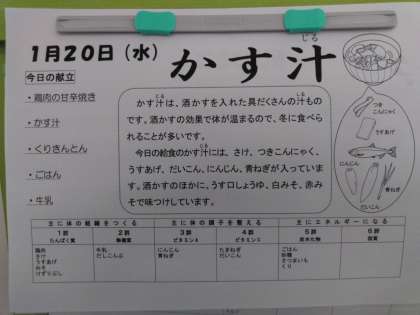 1月20日（水）
かす汁
じる
今日の献立
・鶏肉の甘辛焼き
・かす汁
・くりきんとん
・ごはん
・牛乳
かす汁は、酒かすを入れた具だくさんの汁もの
です。酒かすの効果で体が温まるので、冬に食べら
れることが多いです。
今日の給食のかす汁には、さけ、つきこんにゃく、
うすあげ、だいこん、にんじん、青ねぎが入っていま
す。酒かすのほかに、うす口しょうゆ、白みそ、赤み
そで味つけしています。
つき
こんにゃく
うすあげ
にんじん
だいこん
主に体の組織をつくる
主に体の調子を整える
主にエネルギーになる
1群
たんぱく質
2群
無機質
3群
ビタミンA
4群
ビタミンC
5群
炭水化物
6群
脂質
鶏肉
さけ
うすあげ
みそ
けずりぶし
牛乳
だしこんぶ
にんじん
青ねぎ
たまねぎ
だいこん
ごはん
砂糖
さつまいも
くり